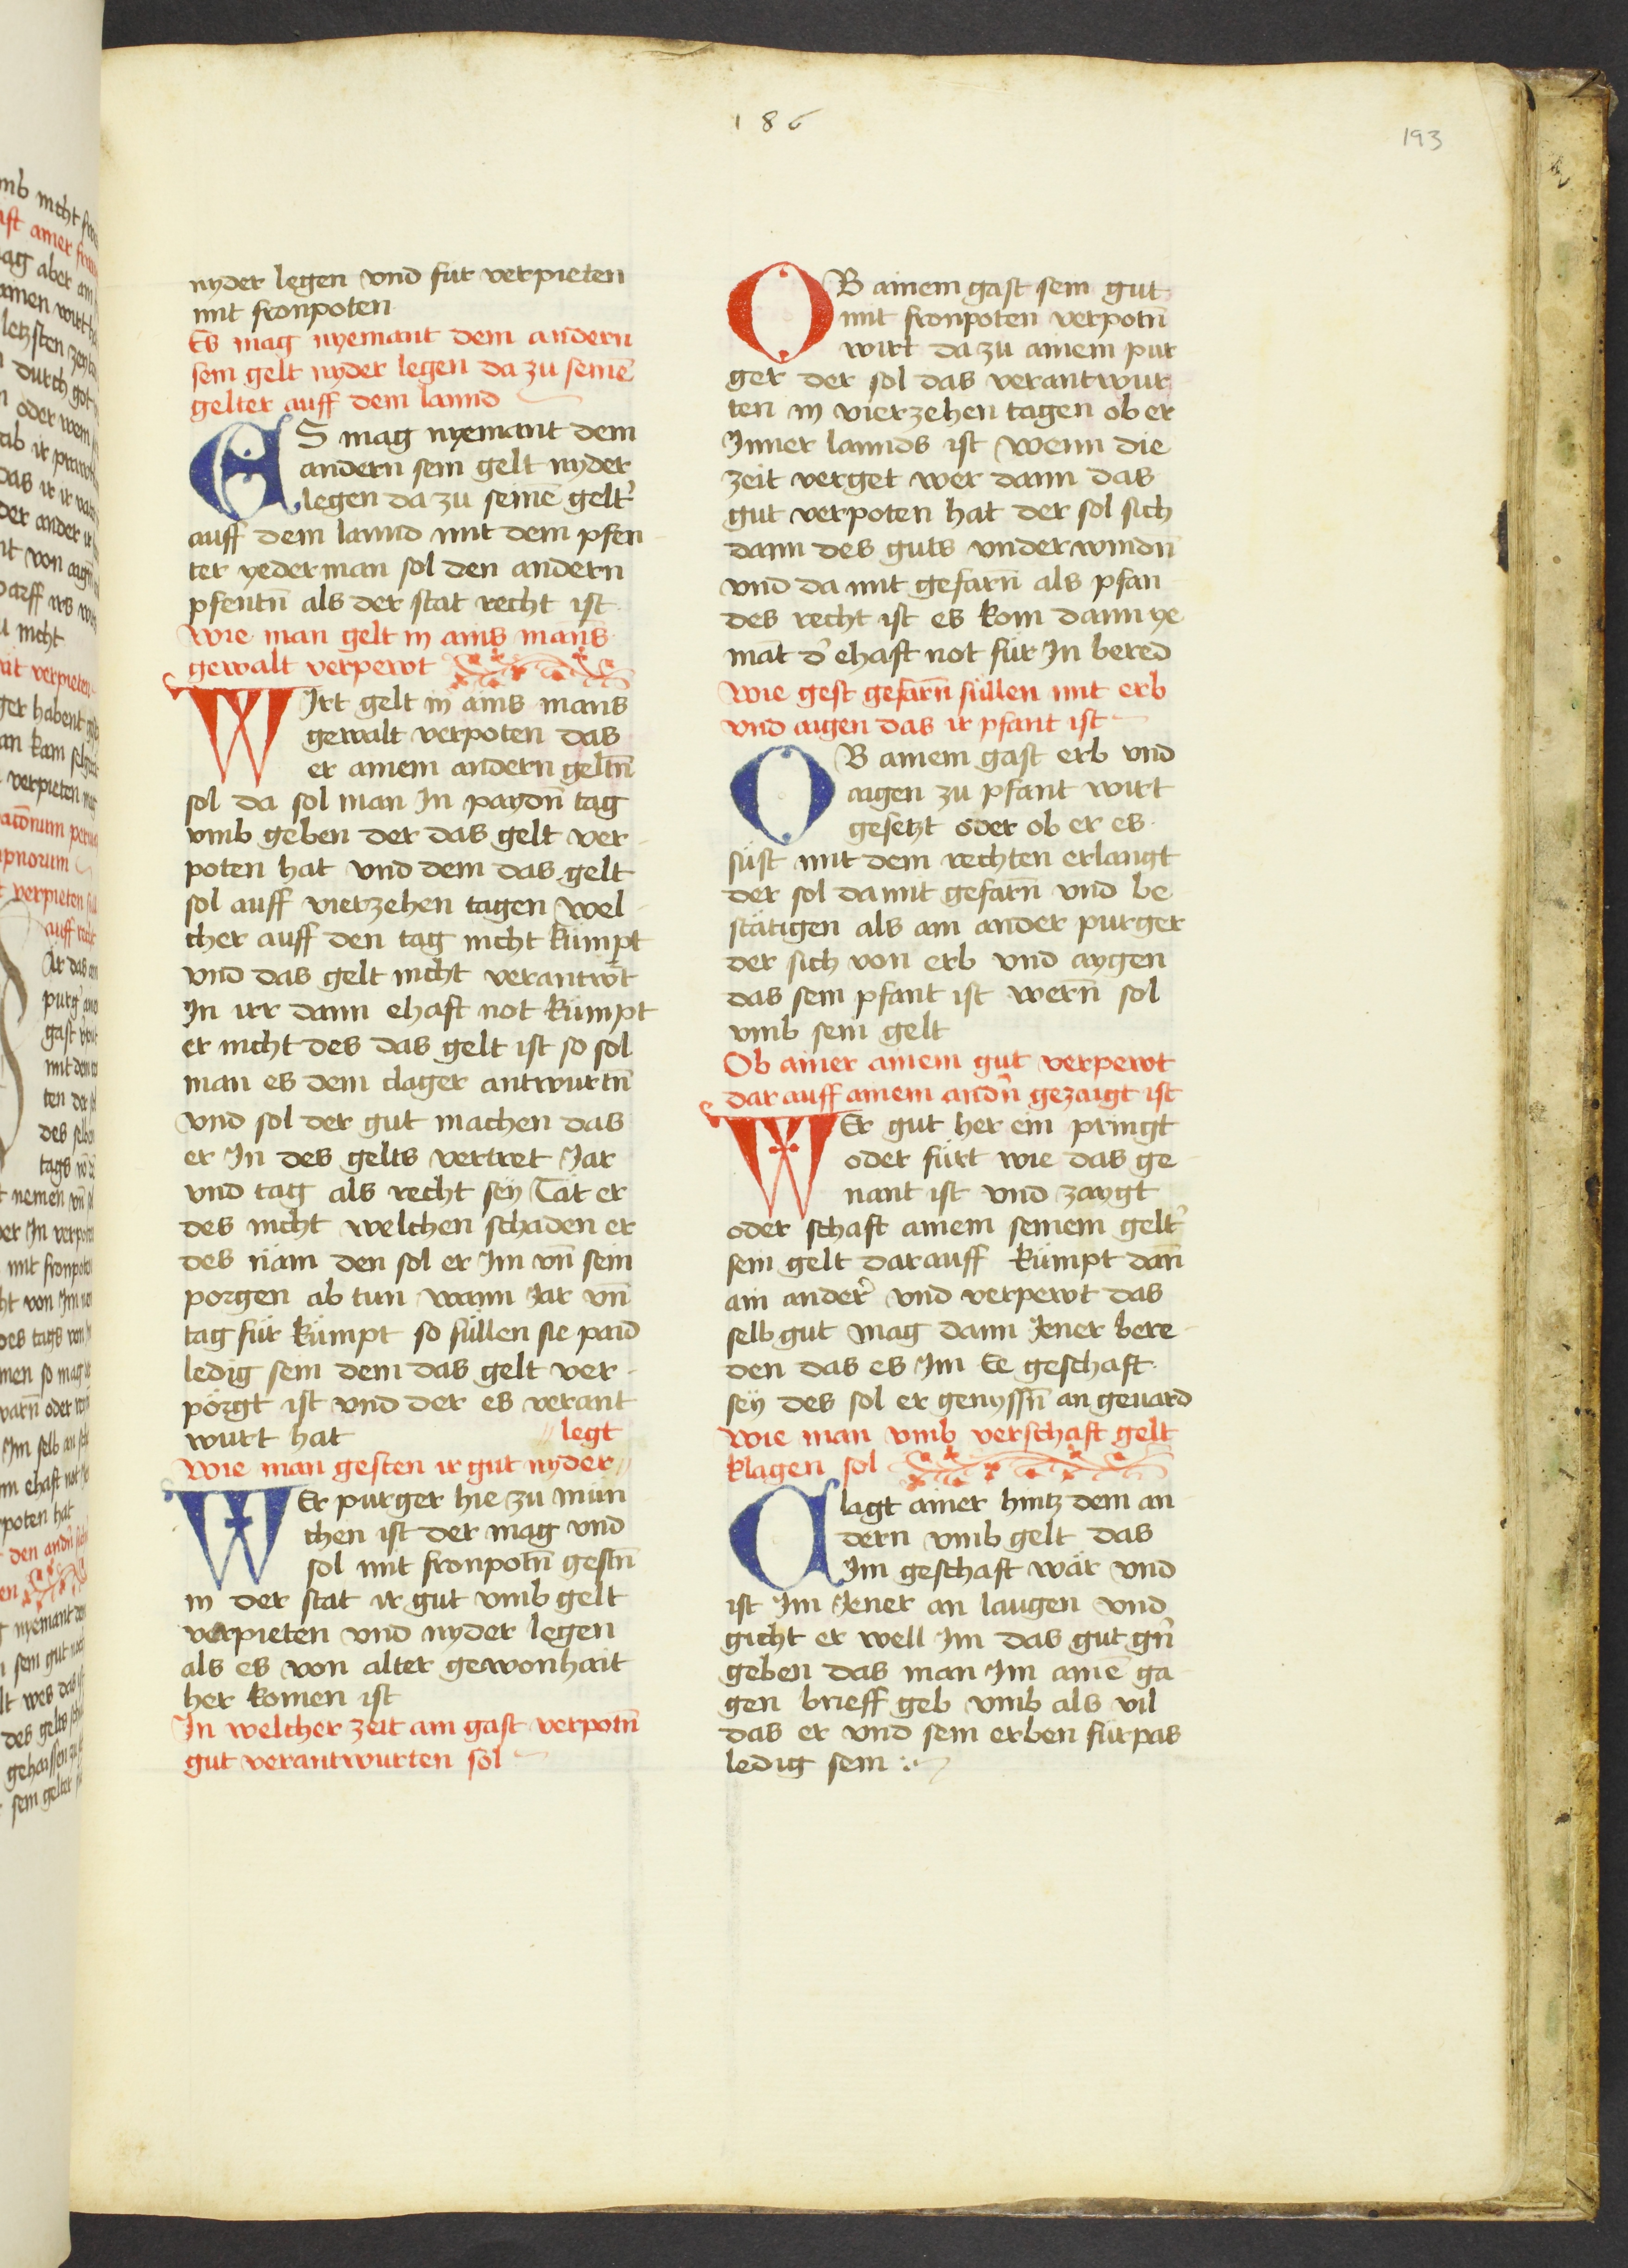 186
193
nyder legen vnd für verpieten
mit fronpoten
Es mag nyemant dem andern
sein gelt nyder legen da zu seinē
gelter auff dem lannd
ES mag nyemant dem
andern sein gelt nyder
legen da zu seinē gelt͛
auff dem lannd mit dem pfen
ter yederman sol den andern
pfentn̄ als der stat recht ist
Wie man gelt in ains mans
gewalt verpewt
WIrt gelt in ains mans
gewalt verpoten das
er ainem andern geltn̄
sol da sol man In paydn̄ tag
vmb geben der das gelt ver
poten hat vnd dem das gelt
sol auff vierzehen tagen wel
cher auff den tag nicht kümpt
vnd das gelt nicht verantw̄t
In irr dann ehaft not kümpt
er nicht des das gelt ist so sol
man es dem clager antwurtn̄
vnd sol der gut machen das
er In des gelts vertret Jar
vnd tag als recht sey Tät er
des nicht welchen schaden er
des näm den sol er Im vn̄ sein
porgen ab tun wann Jar vn̄
tag für kümpt so süllen sie paid
ledig sein dem das gelt ver
pörgt ist vnd der es verant
wurt hat
legt
Wie man gesten ir gut nyder
WEr purger hie zu mün
chen ist der mag vnd
sol mit fronpotn̄ gestn̄
in der stat ir gut vmb gelt
verpieten vnd nyder legen
als es von alter gewonhait
her komen ist
In welcher zeit ain gast verpotn̄
gut verantwurten sol
OB ainem gast sein gut
mit fronpoten verpotn̄
wirt da zu ainem pur
ger der sol das verantwur
ten in vierzehen tagen ob er
Inner lannds ist Wenn die
zeit verget wer dann das
gut verpoten hat der sol sich
dann des guts vnderwindn̄
vnd da mit gefarn̄ als pfan
des recht ist es kom dann ye
māt d͛ ehaft not für In bered
Wie gest gefarn̄ süllen mit erb
vnd aigen das ir pfant ist
OB ainem gast erb vnd
aigen zu pfant wirt
gesetzt oder ob er es
süst mit dem rechten erlangt
der sol damit gefarn̄ vnd be
stätigen als ain ander purger
der sich von erb vnd aygen
das sein pfant ist wern̄ sol
vmb sein gelt
Ob ainer ainem gut verpewt
dar auff ainem andn̄ gezaigt ist
WEr gut her ein pringt
oder fürt wie das ge
nant ist vnd zaygt
oder schaft ainem seinem gelt͛
sein gelt darauff kümpt dan̄
ain ander͛ vnd verpewt das
selb gut mag dann Jener bere
den das es Im Ee geschaft
sey des sol er genyssn̄ an geuard
Wie man vmb verschaft gelt
klagen sol
Clagt ainer hintz dem an
dern vmb gelt das
Im geschaft wär vnd
ist Im Jener an laugen vnd
gicht er well Im das gut gn͛
geben das man Im ainē ga
gen brieff geb vmb als vil
das er vnd sein erben fürpas
ledig sein